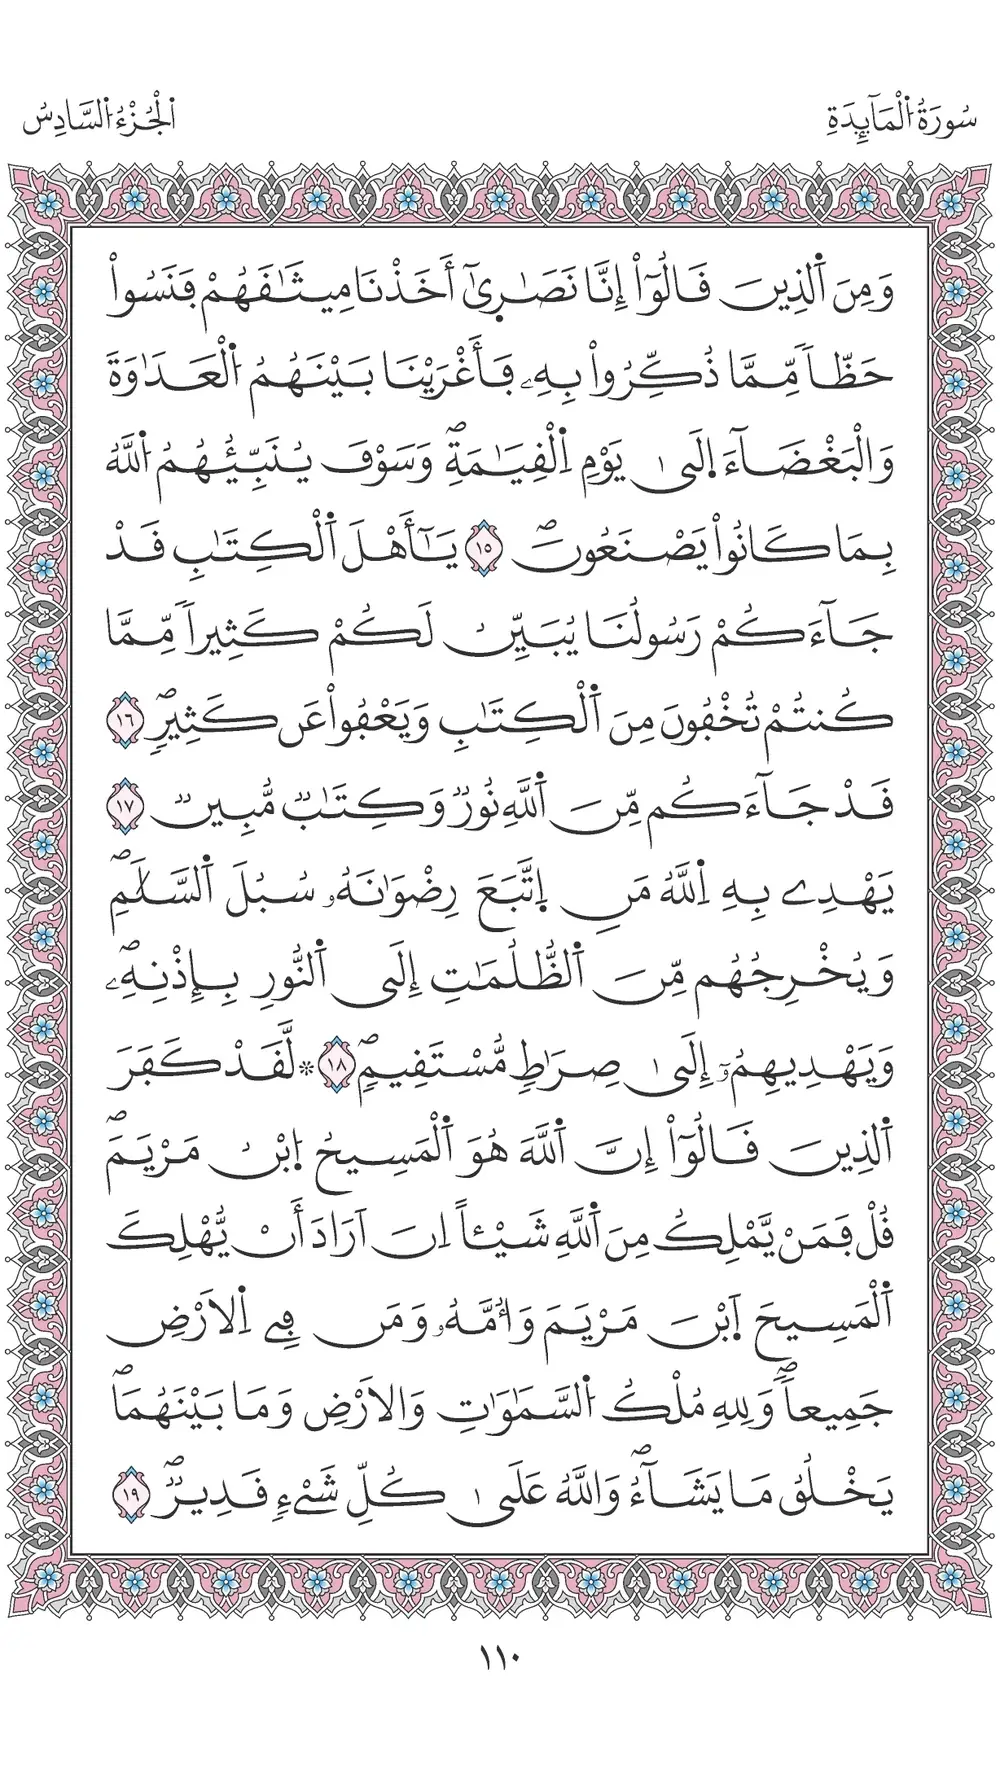 سُورَةُ اُ۬لْمَآئِدَةِ
اَ۬لْجُزْءُ اُ۬لسَّادِسُ
وَمِنَ اَ۬لذِينَ قَالُوٓاْ إِنَّا نَصَٰر۪ىٰٓ أَخَذْنَا مِيثَٰقَهُمْ فَنَسُواْ
حَظّاٗ مِّمَّا ذُكِّرُواْ بِهِۦ فَأَغْرَيْنَا بَيْنَهُمُ اُ۬لْعَدَٰوَةَ
وَالْبَغْضَآءَ اِلَىٰ يَوْمِ اِ۬لْقِيَٰمَةِۖ وَسَوْفَ يُنَبِّئُهُمُ اُ۬للَّهُ
بِمَا كَانُواْ يَصْنَعُونَۖ ١٥ يَٰٓأَهْلَ اَ۬لْكِتَٰبِ قَدْ
جَآءَكُمْ رَسُولُنَا يُبَيِّنُ لَكُمْ كَثِيراٗ مِّمَّا
كُنتُمْ تُخْفُونَ مِنَ اَ۬لْكِتَٰبِ وَيَعْفُواْ عَن كَثِيرٖۖ ١٦
قَدْ جَآءَكُم مِّنَ اَ۬للَّهِ نُورٞ وَكِتَٰبٞ مُّبِينٞ ١٧
يَهْدِے بِهِ اِ۬للَّهُ مَنِ اِ۪تَّبَعَ رِضْوَٰنَهُۥ سُبُلَ اَ۬لسَّلَٰمِۖ
وَيُخْرِجُهُم مِّنَ اَ۬لظُّلُمَٰتِ إِلَى اَ۬لنُّورِ بِإِذْنِهِۦۖ
وَيَهْدِيهِمُۥٓ إِلَىٰ صِرَٰطٖ مُّسْتَقِيمٖۖ ١٨ ۞ لَّقَدْ كَفَرَ
اَ۬لذِينَ قَالُوٓاْ إِنَّ اَ۬للَّهَ هُوَ اَ۬لْمَسِيحُ اُ۪بْنُ مَرْيَمَۖ
قُلْ فَمَنْ يَّمْلِكُ مِنَ اَ۬للَّهِ شَيْـٔاً اِنَ اَرَادَ أَنْ يُّهْلِكَ
اَ۬لْمَسِيحَ اَ۪بْنَ مَرْيَمَ وَأُمَّهُۥ وَمَن فِے اِ۬لَارْضِ
جَمِيعاٗۖ وَلِلهِ مُلْكُ اُ۬لسَّمَٰوَٰتِ وَالَارْضِ وَمَا بَيْنَهُمَاۖ
يَخْلُقُ مَا يَشَآءُۖ وَاللَّهُ عَلَىٰ كُلِّ شَےْءٖ قَدِيرٞۖ ١٩
١١٠